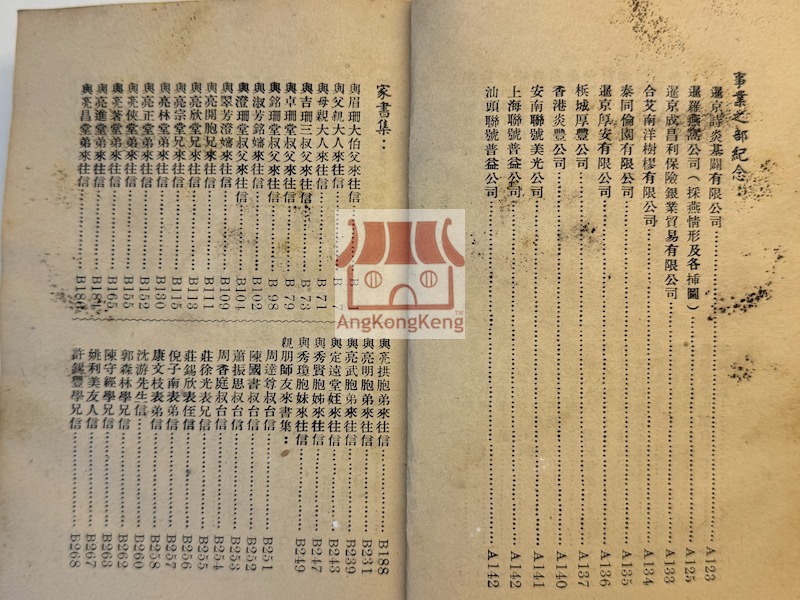 事業之部紀念:
暹京譁炎基鬪有限公司 A123
暹羅燕窩公司(採燕情形及各挿圖) A125
暹京成昌利保險銀業貿易有限公司 A133
合艾南洋樹椶有限公司 A134
泰同倫園有限公司 A135
暹京厚安有限公司 A136
板城厚豐公司 A137
香港炎豐公司 A140
安南聯號美光公司 A141
上海聯號普益公司 A142
汕頭聯號普益公司 A142
家書集:
與眉珊大伯父來往信 B1
與父親大人來往信 B7
與母親大人來往信 B71
與吉珊三叔父來往信 B73
與卓珊堂叔父來往信 B79
與銘珊堂叔父來往信 B98
與淑芳銘嬸來往信 B102
與澄珊堂叔父來往信 B104
與翠芳澄嬸來往信 B109
與亮開胞兄來往信 B111
與亮欣堂兄來往信 B113
與亮宗堂兄來往信 B115
與亮林堂弟來往信 B130
與亮正堂弟來往信 B152
與亮俠堂弟來往信 B155
與亮著堂弟來往信 B163
與亮進堂弟來往信 B184
與亮昌堂弟來往信 B186
與亮拱胞弟來往信 B188
與亮明胞弟來往信 B231
與亮武胞弟來往信 B239
與定遠堂姪來往信 B243
與秀賢胞姊來往信 B247
與秀瓊胞妹來往信 B249
親朋師友來書集:
周逹尊叔台信 B251
陳國書叔台信 B252
蕭振思叔台信 B253
周香庭叔台信 B254
莊徐光表兄信 B255
莊錫欣表侄信 B256
倪子南表弟信 B257
康文枝表弟信 B258
沈游先生信 B260
郭森林學兄信 B262
陳守經學兄信 B263
姚利美友人信 B267
許錫豐學兄信 B268
AngKongKeng